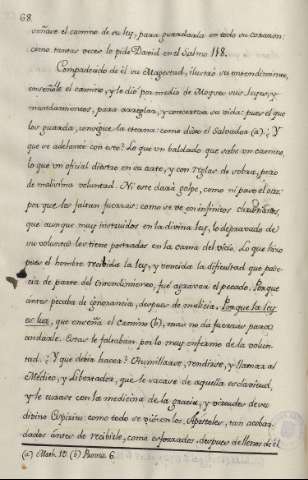 68.
enseñase el camino de su ley, para guardarla en todo su corazon:
como tantas veces lo pide David en el Salmo 118.
Compadecido de él su Magestad, ilustró su entendimiento,
enseñóle el camino, y le dió por medio de Moyses sus leyes, y
mandamientos, para arreglar, y concertar su vida: pues el que
los guarda, consigue la eterna: como dixo el Salvador (a). ¿Y
que se adelantó con esto? Lo que un baldado que sabe un camino,
lo que un oficial diestro en su arte, y con reglas de sobra, pero
de malisima voluntad. Ni este dará golpe, como ni paso el otro
por que les faltan fuerzas: como se ve en infinitos christianos,
que aunque muy instruidos en la divina ley, lo depravado de
su voluntad les tiene postrados en la cama del vicio. Lo que hizo
pues el hombre recibida la ley, y vencida la dificultad que pade-
cia de parte del entendimiento, fué agravar el pecado. Porque
antes pecaba de ignorancia, despues de malicia. Porque la ley
es luz, que enseña el camino (b), mas no da fuerzas para
andarle. Estas le faltaban por lo muy enfermo de la volun-
tad. ¿Y que debia hacer? Humillarse, rendirse, y llamar al
Médico, y Libertador, que le sacase de aquella esclavitud,
y le curase con la medicina de la gracia, y virtudes de su
divino Espiritu: como todo se vió en los Apostoles, tan acobar-
dados ántes de recibirle, como esforzados, despues de llenos de él.
(a) Math. 19. (b) Prover. 6.